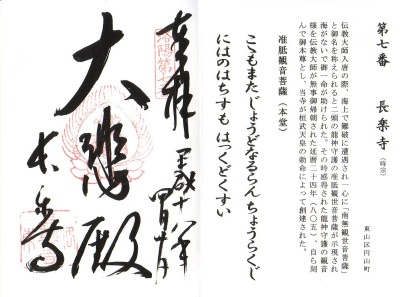 第七番　長楽寺（時宗）
東山区円山町
伝教大師入唐の際、海上で難破に遭遇され一心に「南無観世音菩薩」
と御名を称えられると二頭の龍神守護の准胝観世音菩薩が示現され
海がないで御一命が助けられた。その時感得された龍神守護の観音
様を伝教大師が無事御帰朝された延暦二十四年（八〇五）、自ら刻
んで御本尊とし、当寺が桓武天皇の勅命によって創建された。
准胝観音菩薩（本堂）
こもまた じょうどなるらん ちょうらくじ
にはのはちすも はっくどくすい
奉拝
平成十八年
大悲殿
長楽寺